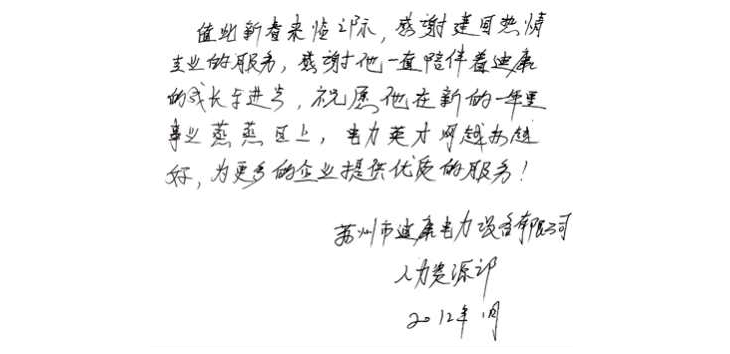 值此新春来临之际，感谢建国热情
专业的服务，感谢他一直陪伴着迪康
的成长与进步，祝愿他在新的一年里
事业蒸蒸日上，电力英才网越办越
好，为更多的企业提供优质的服务！
苏州市迪康电力设备有限公司
人力资源部
2012年1月